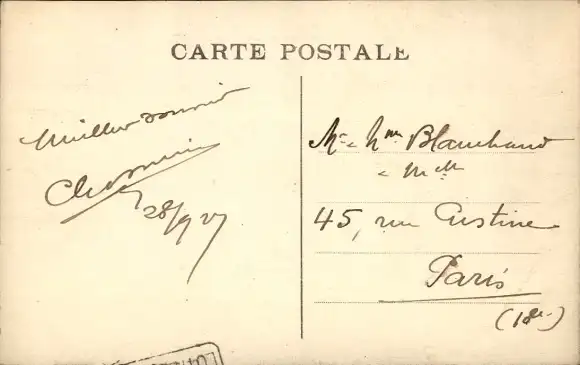 CARTE POSTALE
Meilleur souvenir
28/9 27
Mr & Mme Blanchard
& Mlle
45, rue Custine
Paris
(18e)